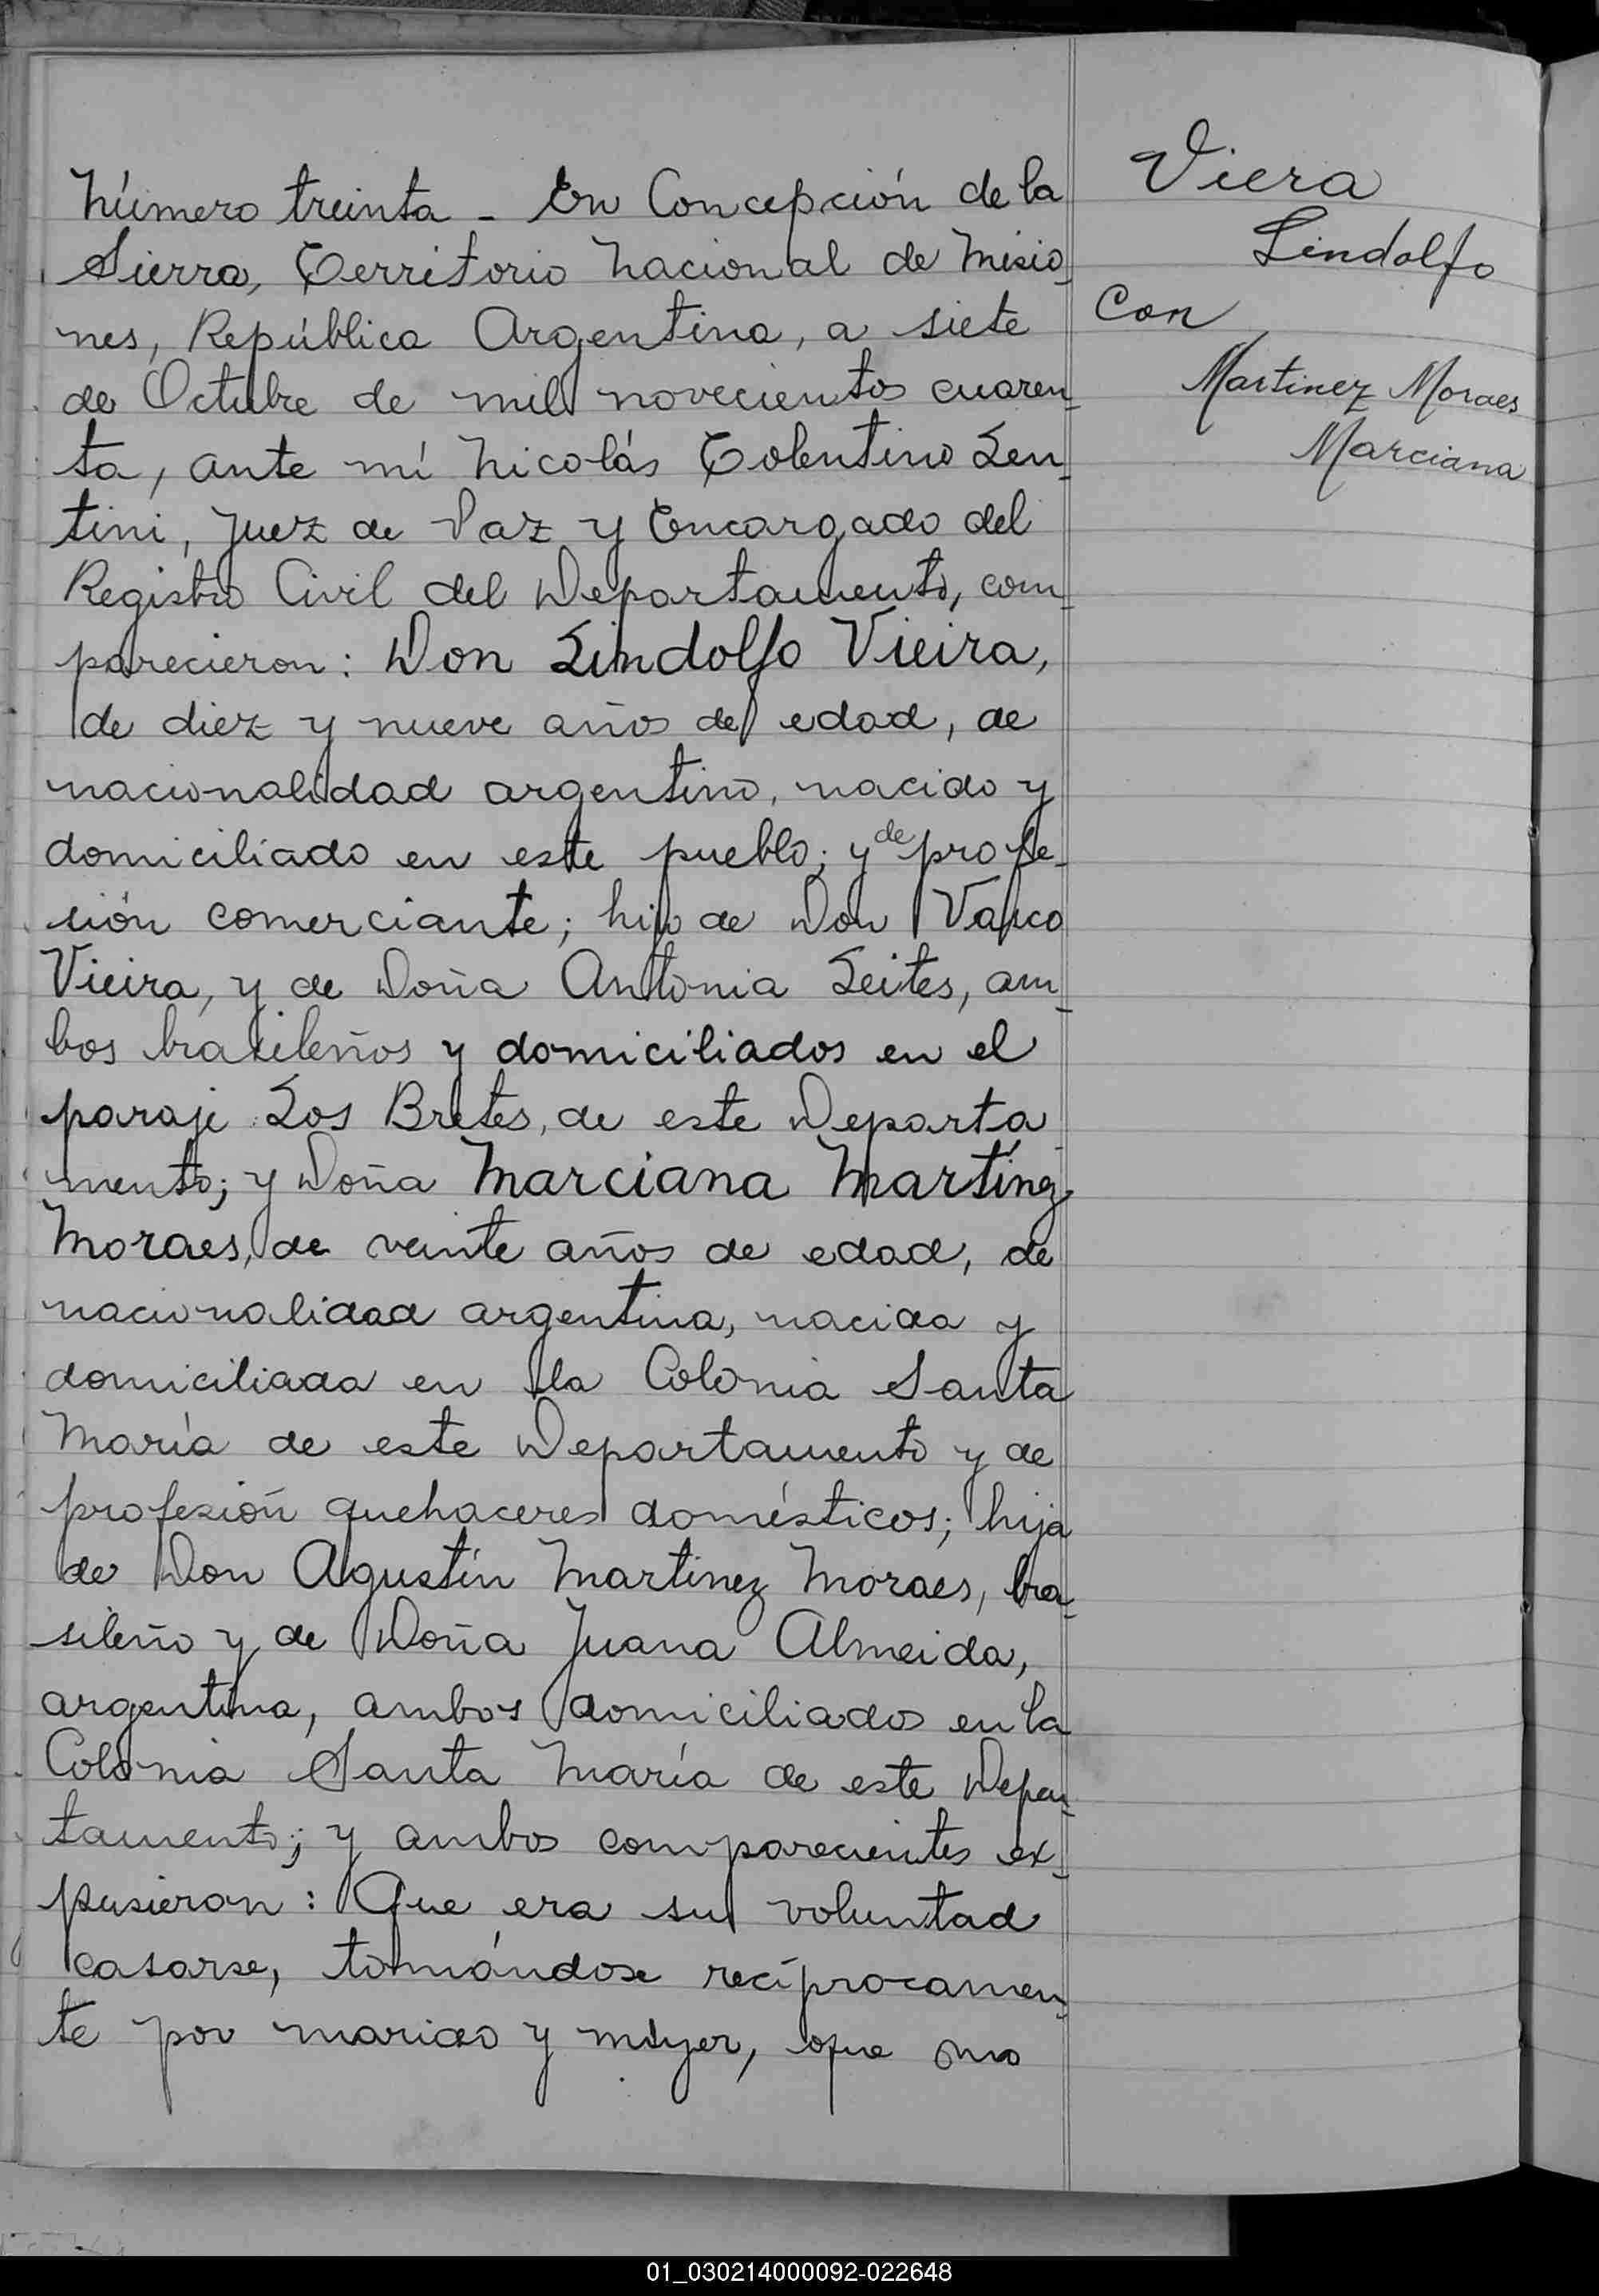 Número treinta - En Concepción de la
Sierra, Territorio Nacional de Misio-
nes, República Argentina, a siete
de Octubre de mil novecientos cuaren-
ta, ante mí Nicolás Tolentino Len-
tini, Juez de Paz y Encargado del
Registro Civil del Departamento, com-
parecieron: Don Lindolfo Vieira,
de diez y nueve años de edad, de
nacionalidad argentino, nacido y
domiciliado en este pueblo; y de profe-
sión comerciante; hijo de Don Vasco
Vieira, y de Doña Antonia Leites, am-
bos brasileños y domiciliados en el
paraje Los Bretes, de este Departa
mento; y Doña Marciana Martínez
Moraes, de veinte años de edad, de
nacionalidad argentina, nacida y
domiciliada en la Colonia Santa
María de este Departamento y de
profesión quehaceres domésticos; hija
de Don Agustín Martinez Moraes, bra-
sileño y de Doña Juana Almeida,
argentina, ambos domiciliados en la
Colonia Santa María de este Depar-
tamento; y ambos comparecientes ex-
pusieron: Que era su voluntad
casarse, tomándose recíprocamen-
te por marido y mujer, que no
Viera
Lindolfo
Con
Martinez Moraes
Marciana
01_030214000092-022648